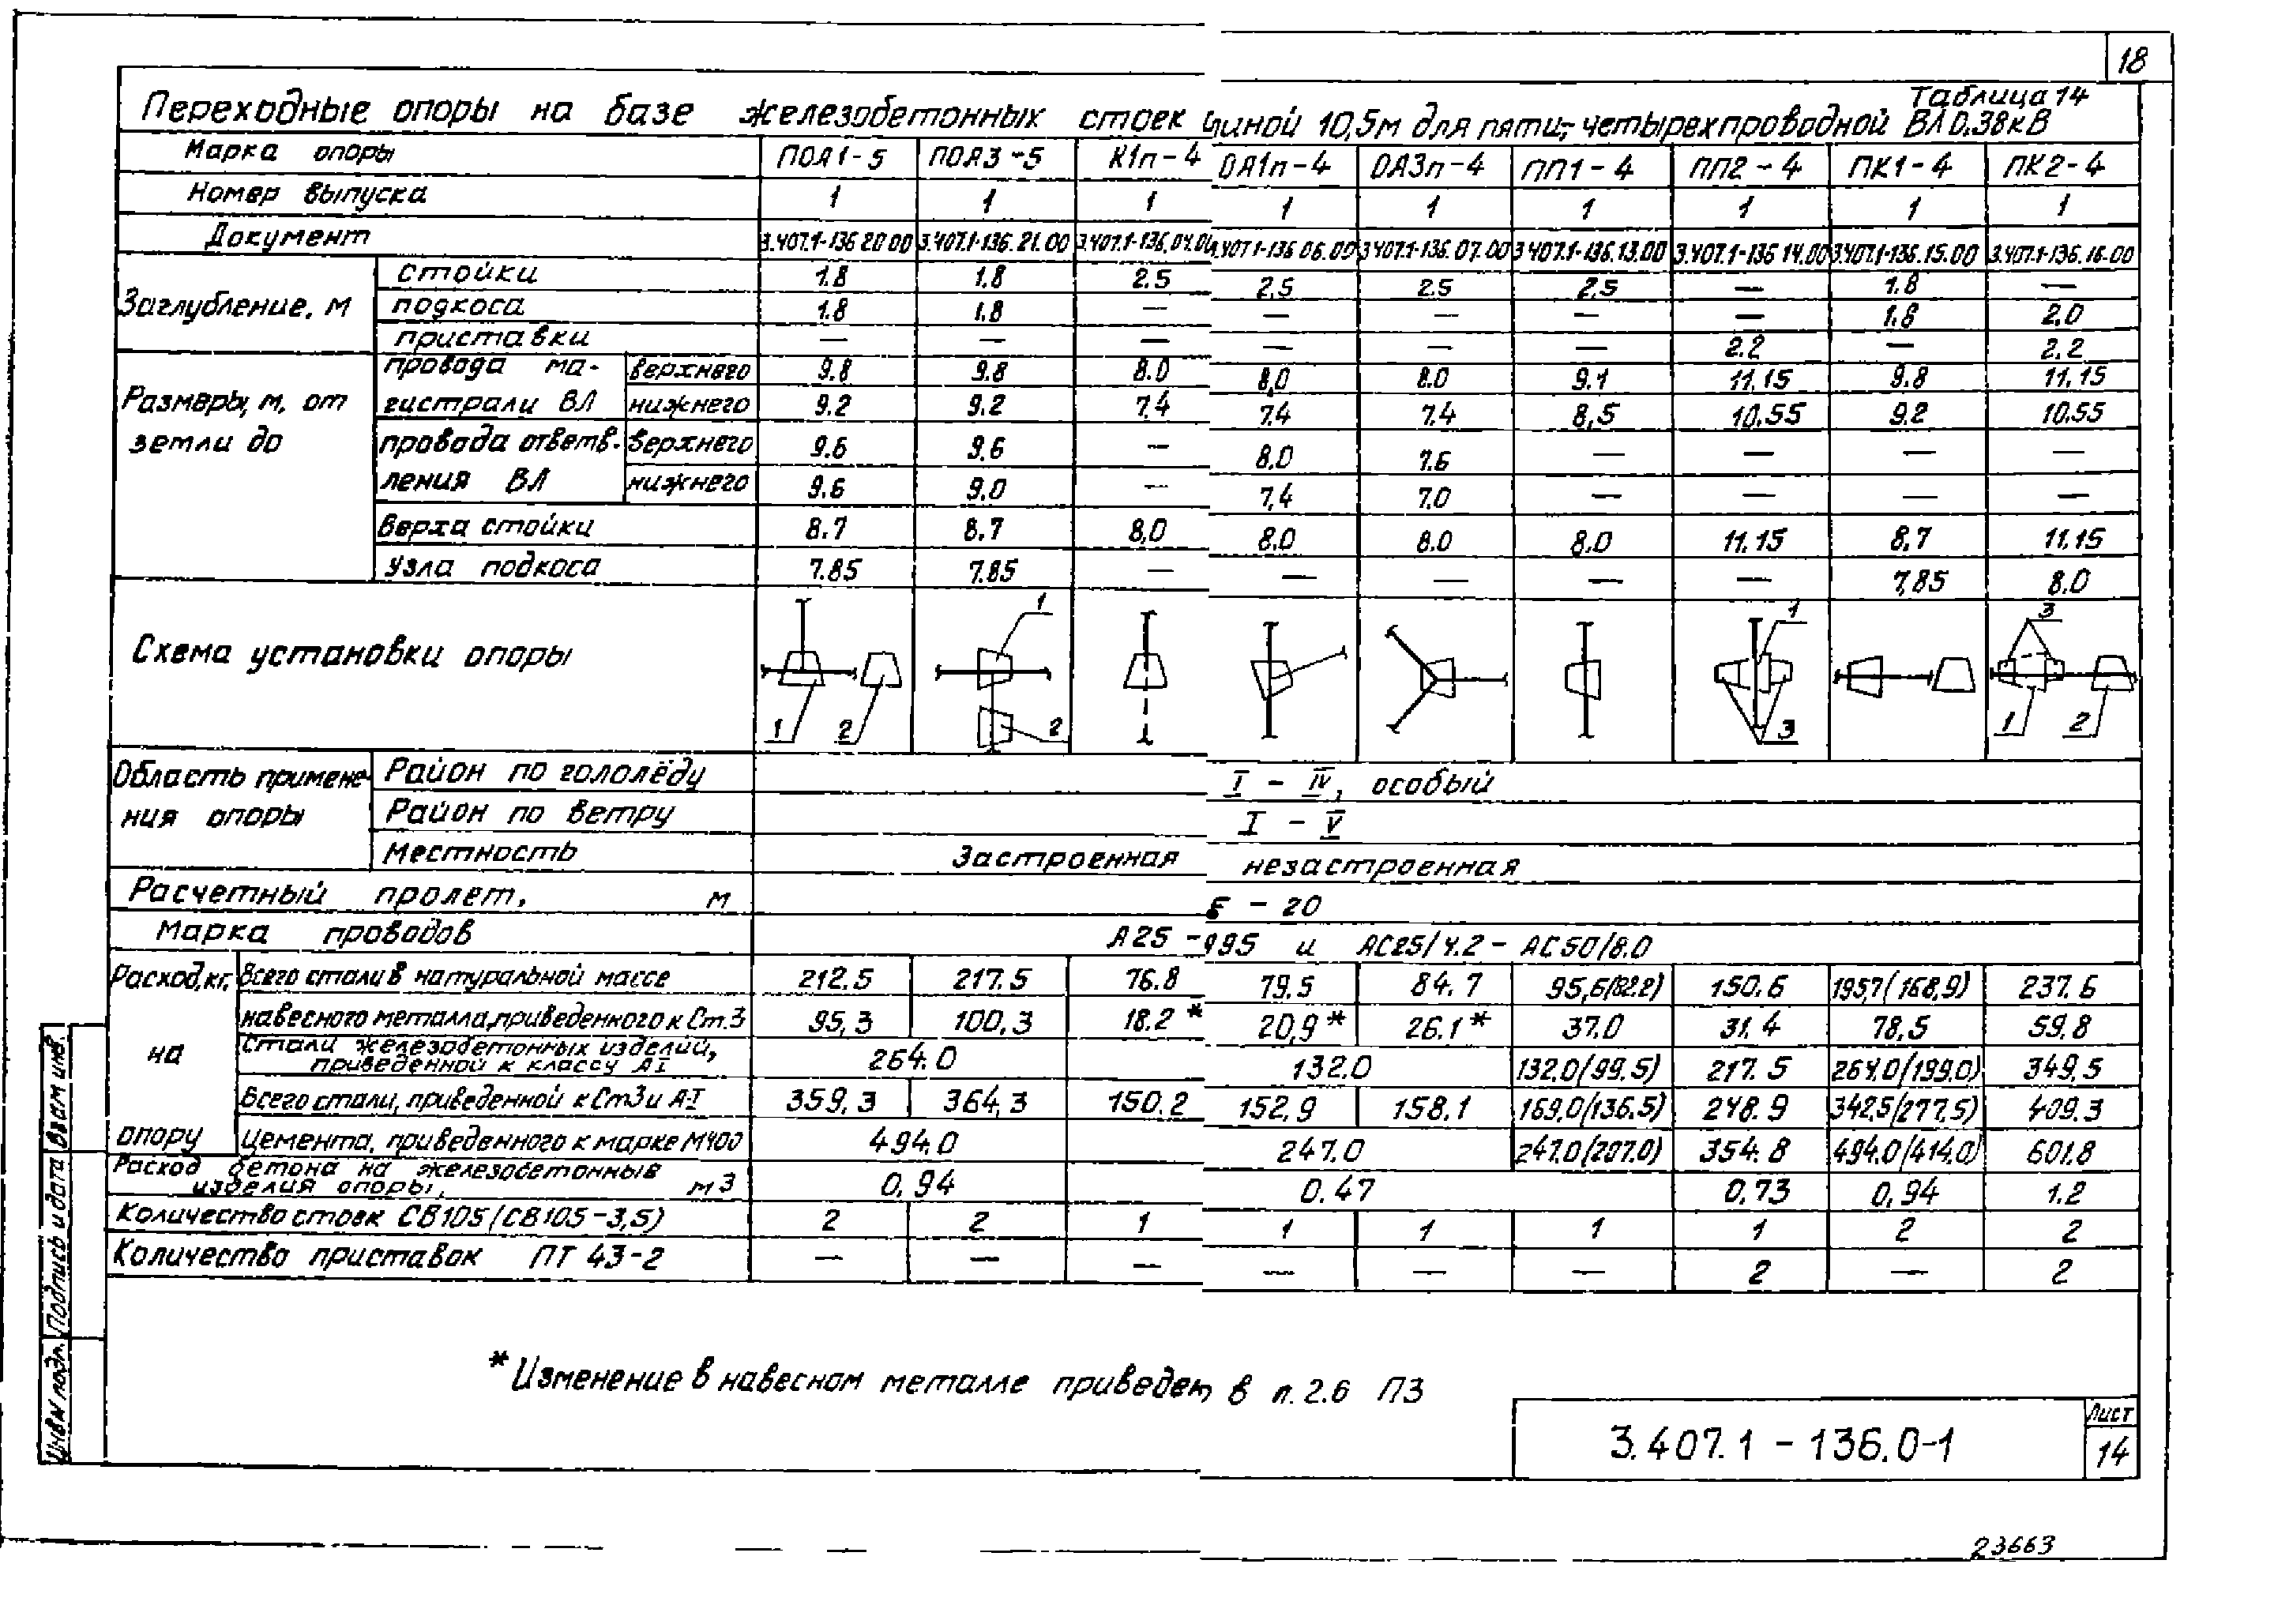 18
Таблица 14
Переходные опоры на базе железобетонных стоек иной 10,5м для пяти-, четырехпроводной ВЛ 0.38кВ
Марка опоры ПОА1-5 ПОА3-5 К1п-4 ОА1п-4 ОА3п-4 ПП1-4 ПП2-4 ПК1-4 ПК2-4
Номер выпуска 1 1 1 1 1 1 1 1 1
Документ 3.407.1-136 20 00 3.407.1-136. 21. 00 3.407.1-136. 04. 00 3.407.1-136 06.00 3.407.1-136. 07. 00 3 407.1-136.13.00 3.407.1-136 14.00 3.407.1-136.15.00 3.407.1-136.16.00
Заглубление, м стойки 1.8 1.8 2.5 2.5 2.5 2.5 — 1.8 —
подкоса 1.8 1.8 — — — — — 1.8 2.0
приставки — — — — — — 2.2 — 2.2
Размеры, м, от земли до
провода магистрали ВЛ верхнего 9.8 9.8 8.0 8,0 8.0 9.1 11.15 9.8 11.15
нижнего 9.2 9.2 7.4 7.4 7.4 8,5 10.55 9.2 10.55
провода ответвления ВЛ верхнего 9.6 9.6 — 8.0 7.6 — — — —
нижнего 9.6 9.0 — 7,4 7.0 — — — —
верха стойки 8.7 8.7 8,0 8.0 8.0 8.0 11.15 8,7 11.15
узла подкоса 7.85 7.85 — — — — — 7,85 8.0
Схема установки опоры
1 2 1 2 1 3 3 1 2
Область применения опоры
Район по гололёду I - IV, особый
Район по ветру I - V
Местность Застроенная незастроенная
Расчетный пролет, м - 20
Марка проводов А25 - А95 и АС25/4.2 - АС50/8.0
Расход, кг, на опору
Всего стали в натуральной массе 212.5 217.5 76.8 79.5 84.7 95,6(82.2) 150.6 195.7(168,9) 237.6
навесного металла, приведенного к Ст.3 95,3 100,3 18.2* 20,9* 26.1* 37.0 31.4 78,5 59.8
Стали железобетонных изделий, приведенной к классу АI 264.0 132.0 132,0(99.5) 217.5 264.0(199.0) 349.5
Всего стали, приведенной к Ст3 и А-I 359,3 364,3 150.2 152,9 158.1 169,0(136.5) 248.9 342.5(277,5) 409.3
Цемента, приведенного к марке М400 494.0 247.0 247.0(207.0) 354.8 494.0(414.0) 601.8
Расход бетона на железобетонные изделия опоры, м3 0,94 0.47 0,73 0,94 1.2
Количество стоек СВ105/(СВ105-3,5) 2 2 1 1 1 1 1 2 2
Количество приставок ПТ 43-2 — — — — — — 2 — 2
* Изменение в навесном металле приведен в п. 2.6 ПЗ
3.407.1 - 136.0-1
Лист
14
Инв№ подл. Подпись и дата Взам инв.
23663